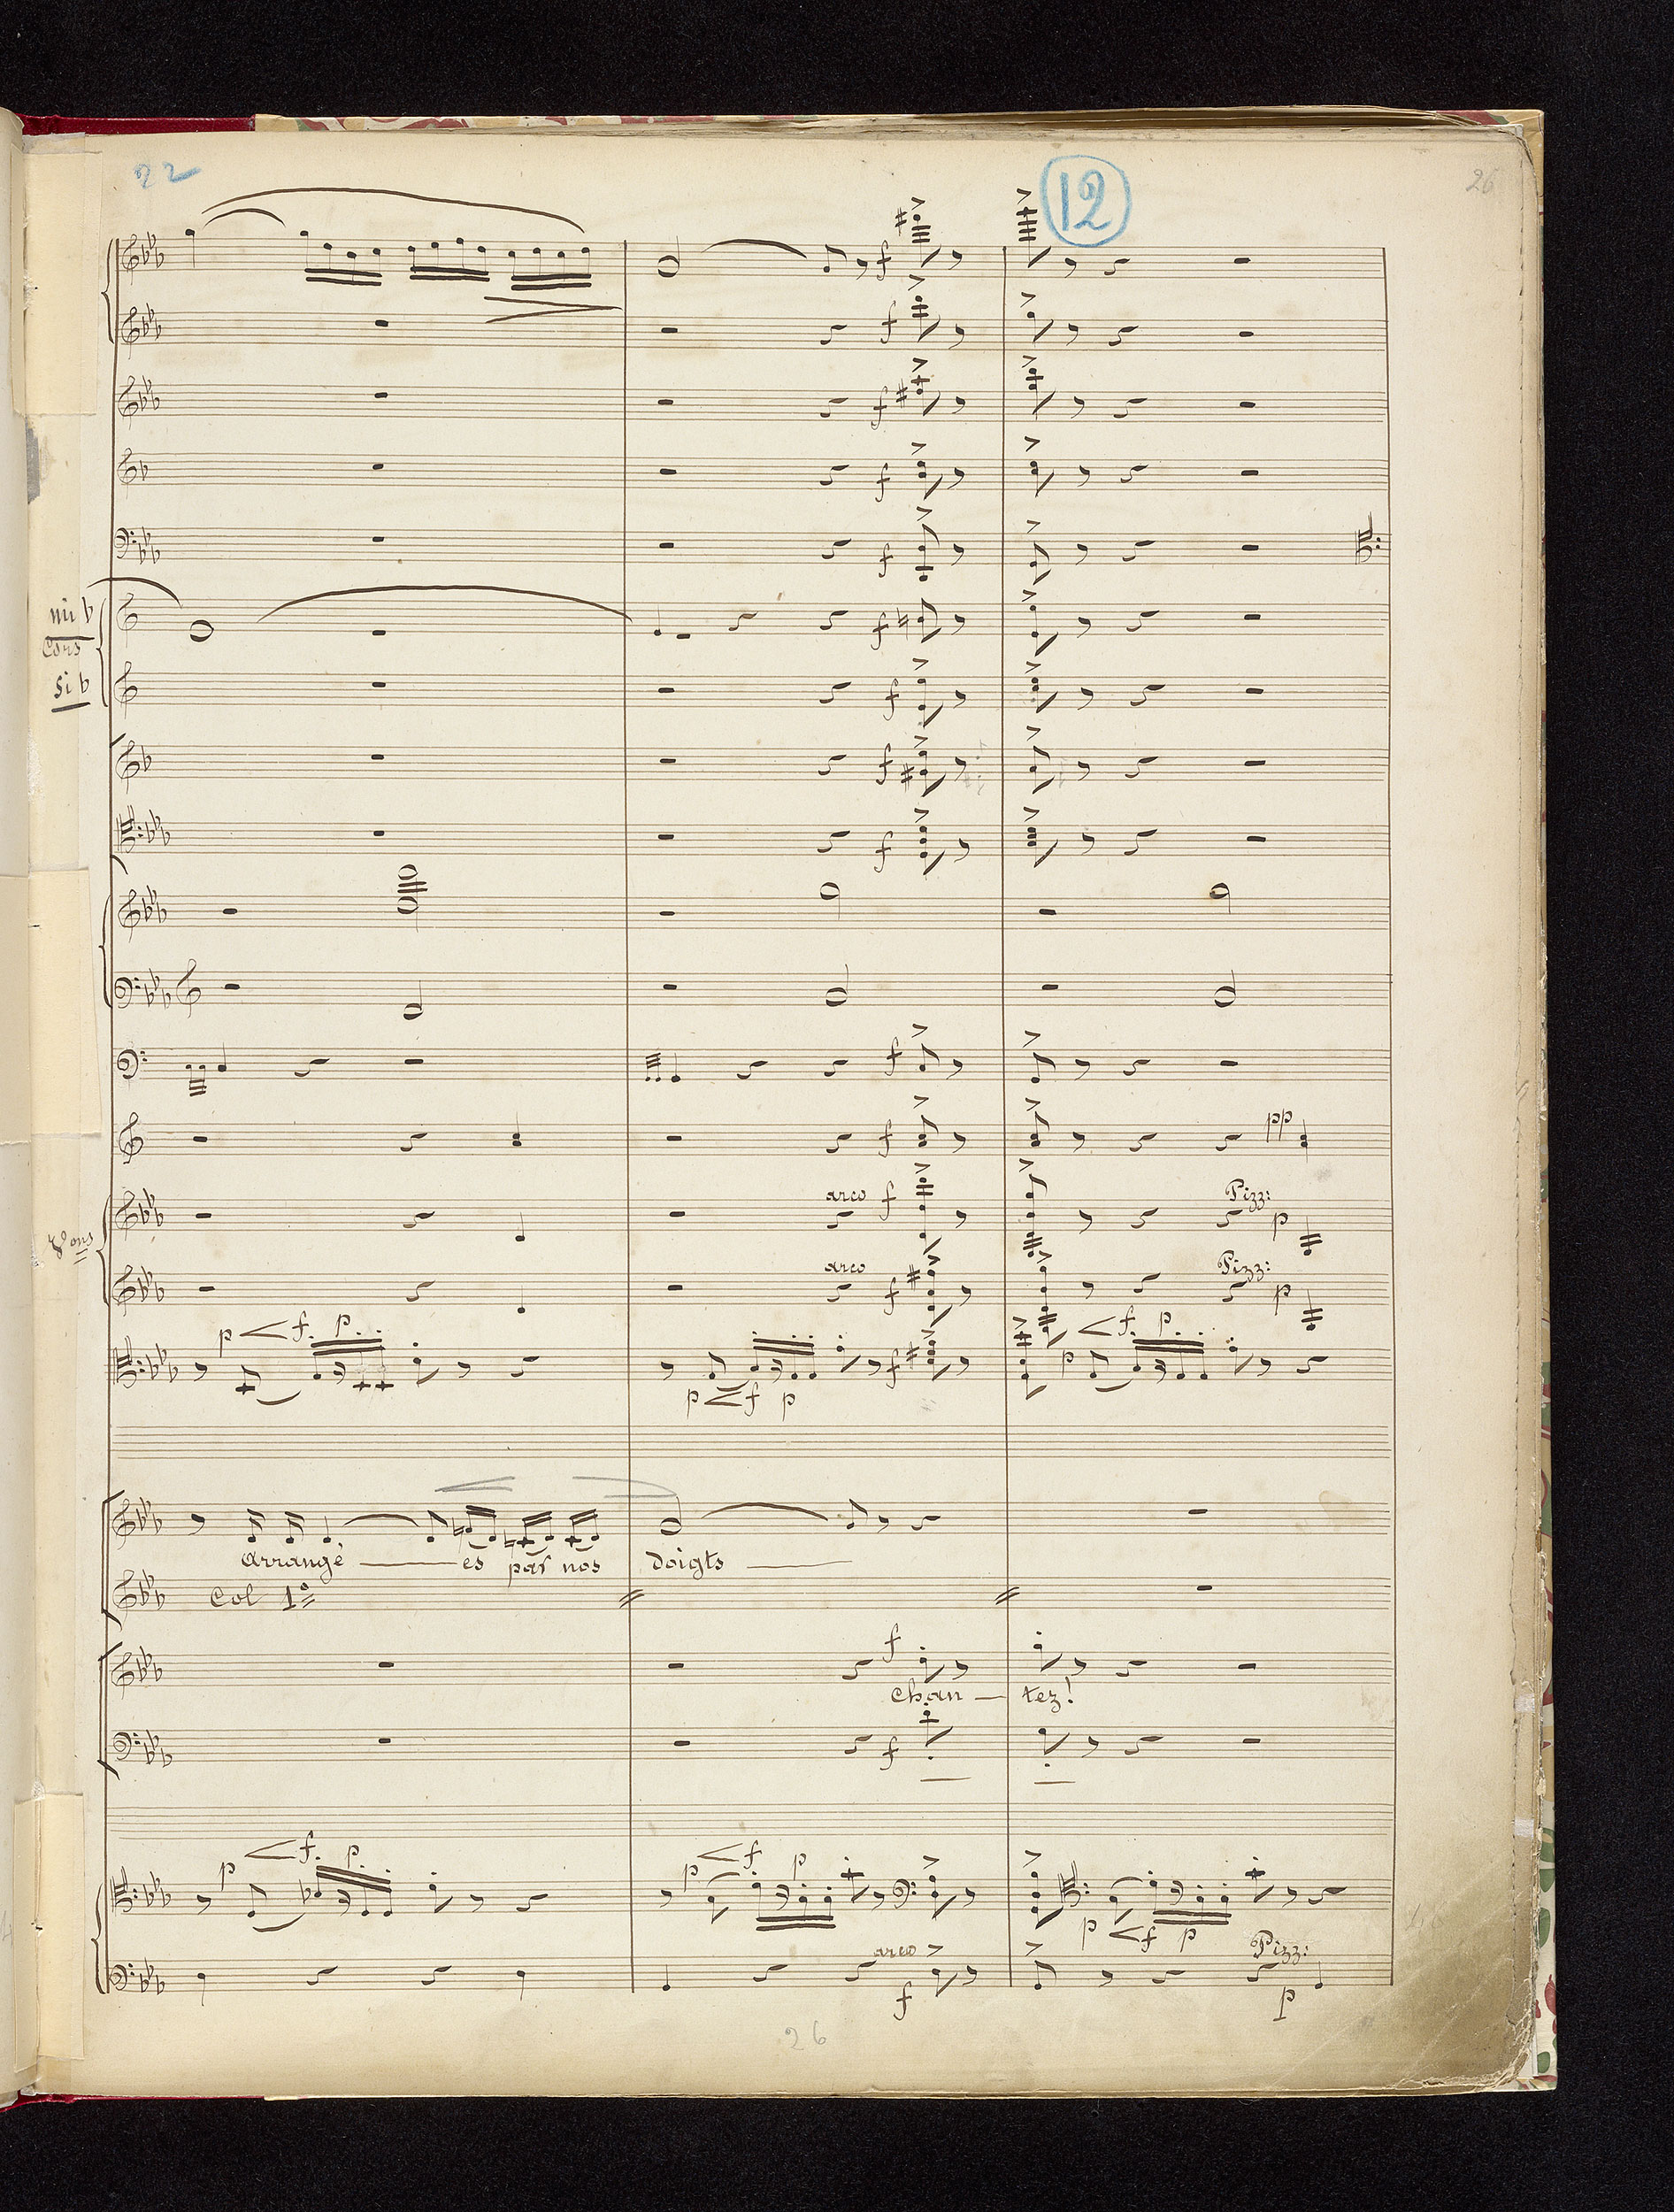 22
12
26
f
f
f
f
f
mi b
Cors
f
si b
f
f
f
f
f
pp
arco f
Pizz:
p
Vons
arco
f
Pizz:
p
p f p
f p
p
f
p
p f p
arrangé es par nos doigts
Col 1º
f
chan - tez!
f
p f p
p f p
p f p
arco
f
Pizz:
p
26